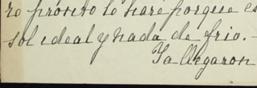 ro pósito lo haré porque es
sol ideal y nada de frio.-
Ya llegaron